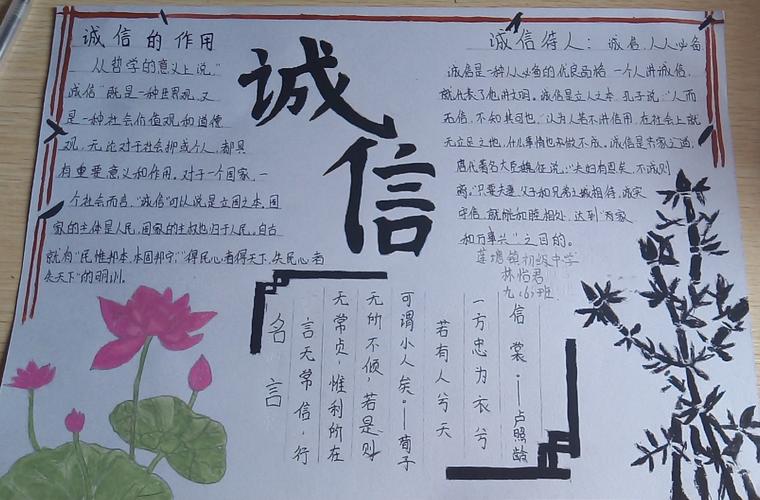 诚信的作用
从哲学的意义上说，“
诚信”既是一种世界观，又
是一种社会价值观和道德
观，无论对于社会抑或个人，都具
有重要意义和作用。对于一个国家，一
个社会而言，“诚信”可以说是立国之本，国
家的主体是人民，国家的主权也归于人民。自古
就有“民惟邦本，本固邦宁”；“得民心者得天下，失民心者
失天下”的明训。
诚信
诚信待人：诚信，人人必备
诚信是一种人人必备的优良品格，一个人讲诚信，
就代表了他讲文明。诚信是立人之本，孔子说：“人而
无信，不知其可也。”认为人若不讲信用，在社会上就
无立足之地，什么事情也做不成。诚信是齐家之道，
唐代著名大臣魏征说：“夫妇有恩矣，不诚则
离。”只要夫妻、父子和兄弟之诚相待，诚实
守信，就能和睦相处，达到“家
和万事兴”之目的。
莲塘镇初级中学
林怡君
九（6）班
信裳。——卢照龄
一方忠为衣兮
若有人兮天
可谓小人矣。——荀子
无所不倾，若是则
无常贞，惟利所在
言无常信，行
名言